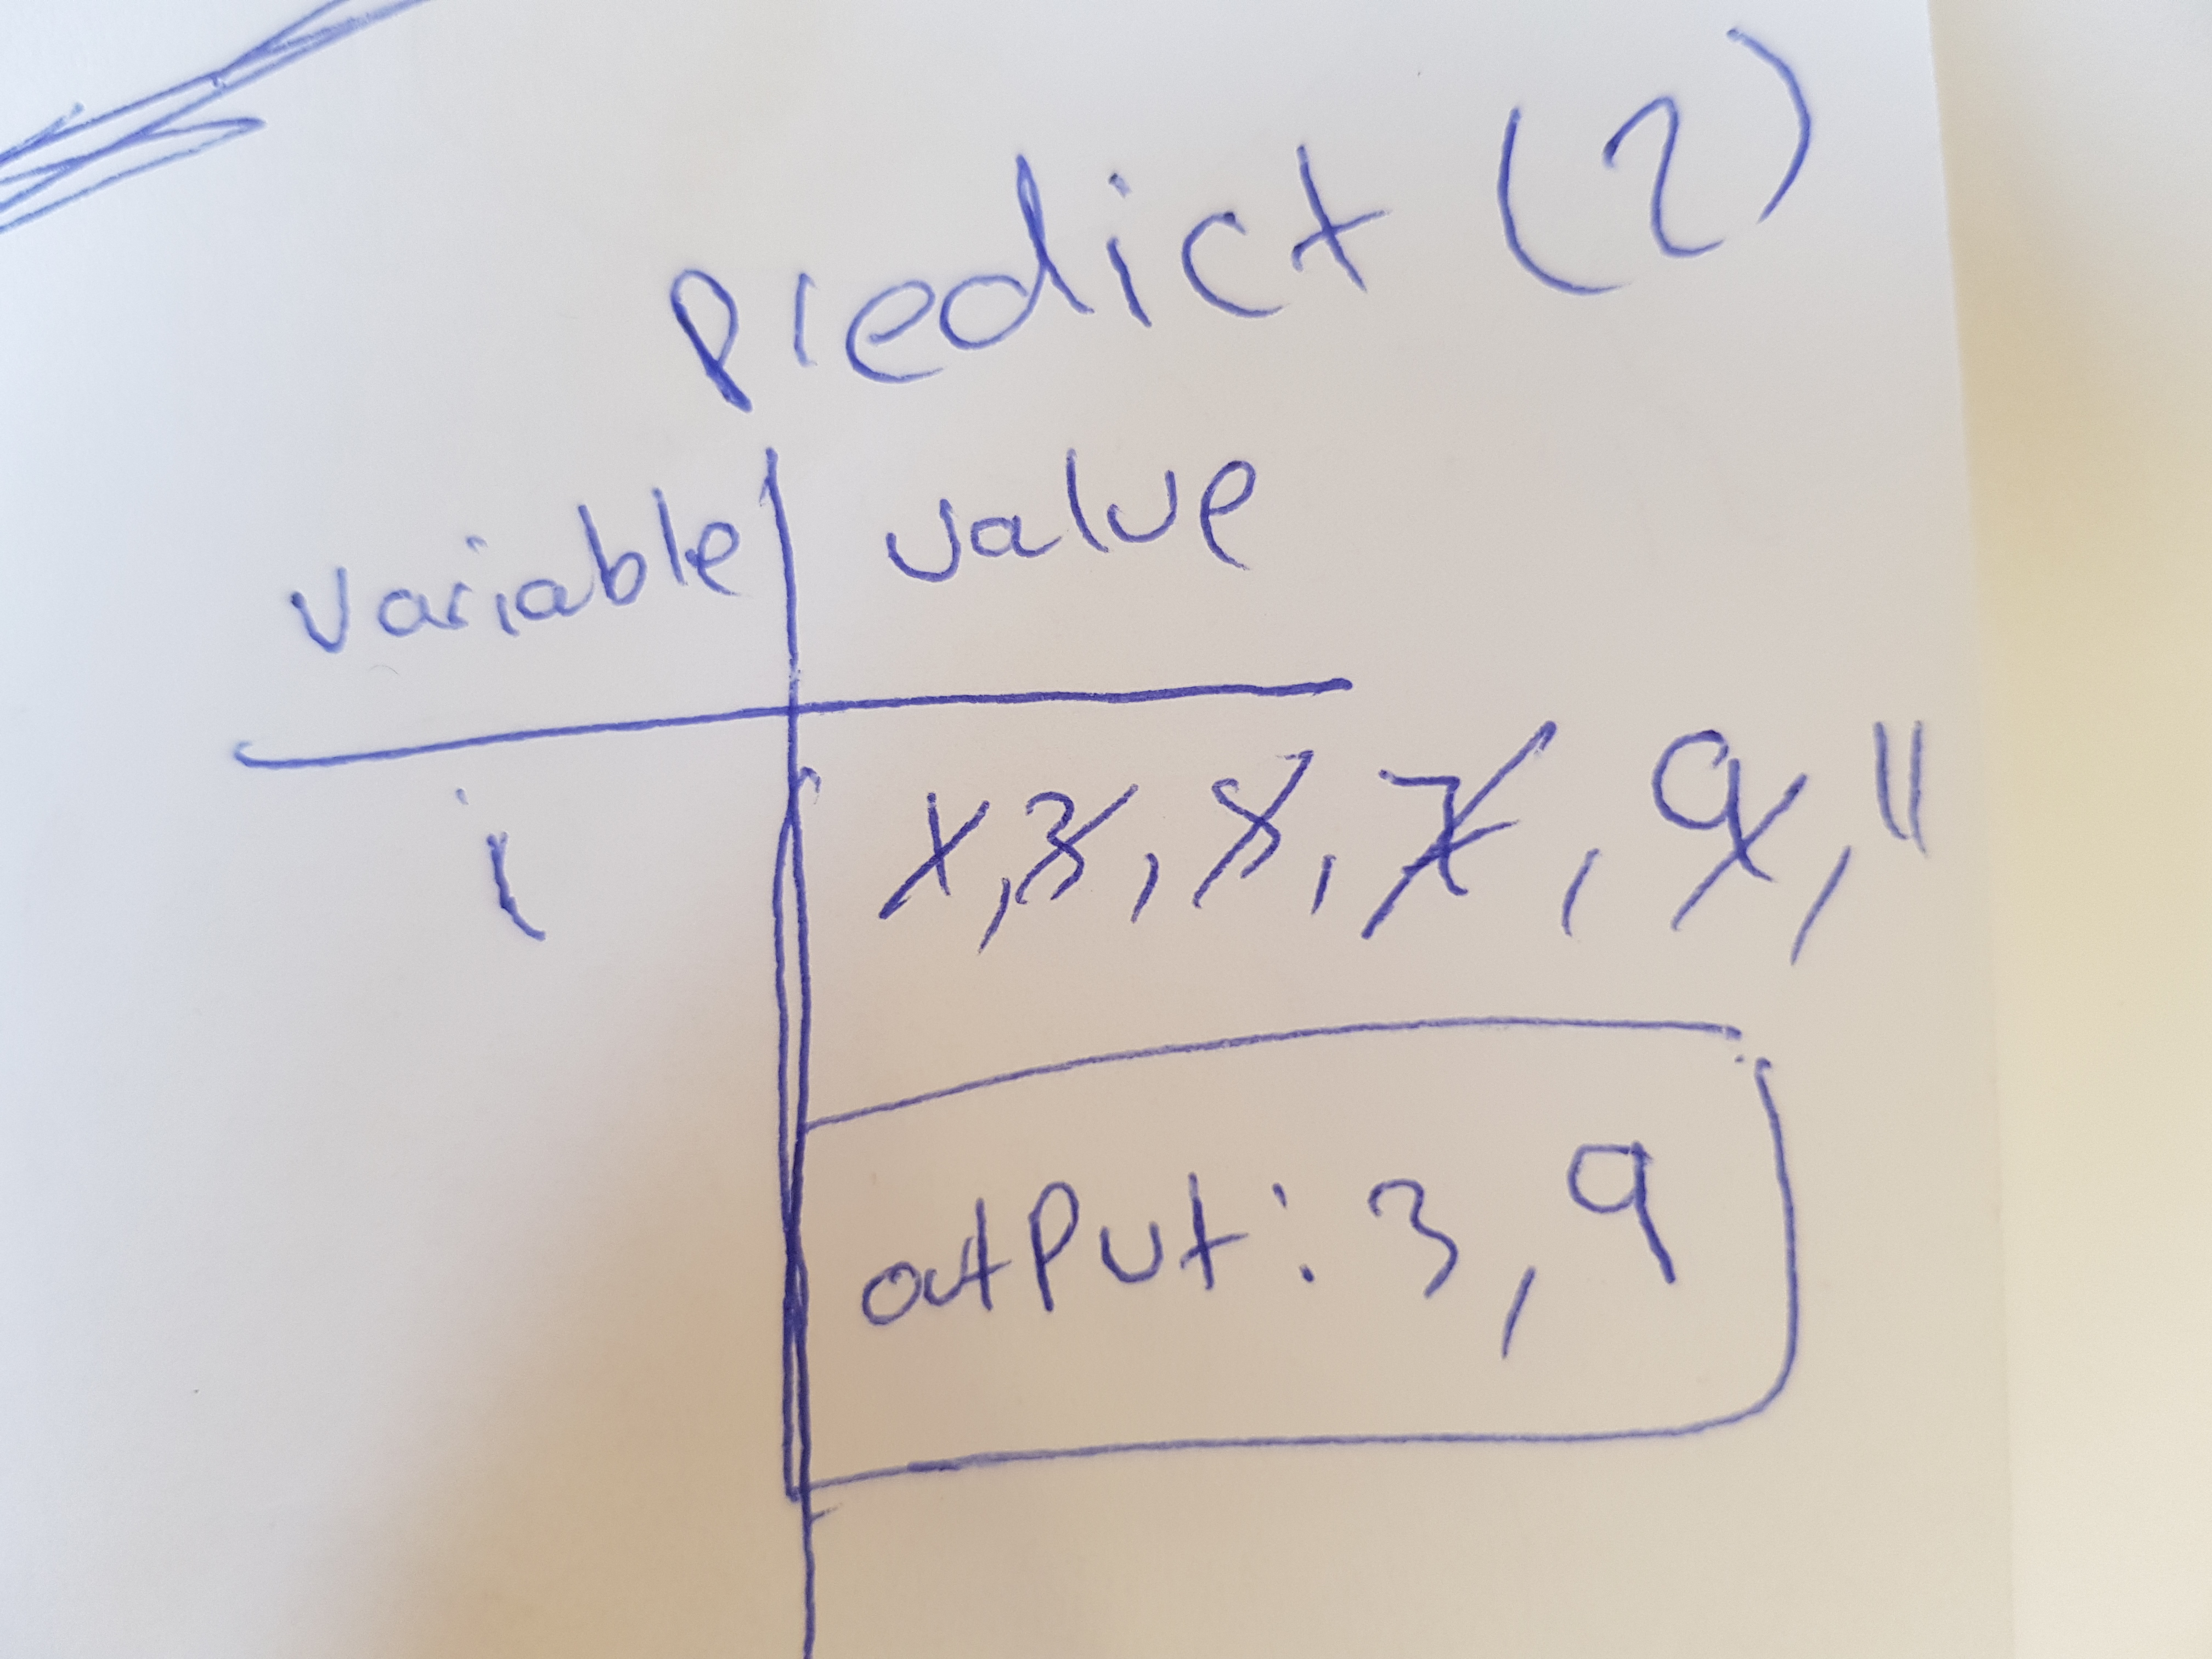 Predict (2)
Variable value
i 1, 3, 5, 7, 9, 11
output : 3, 9